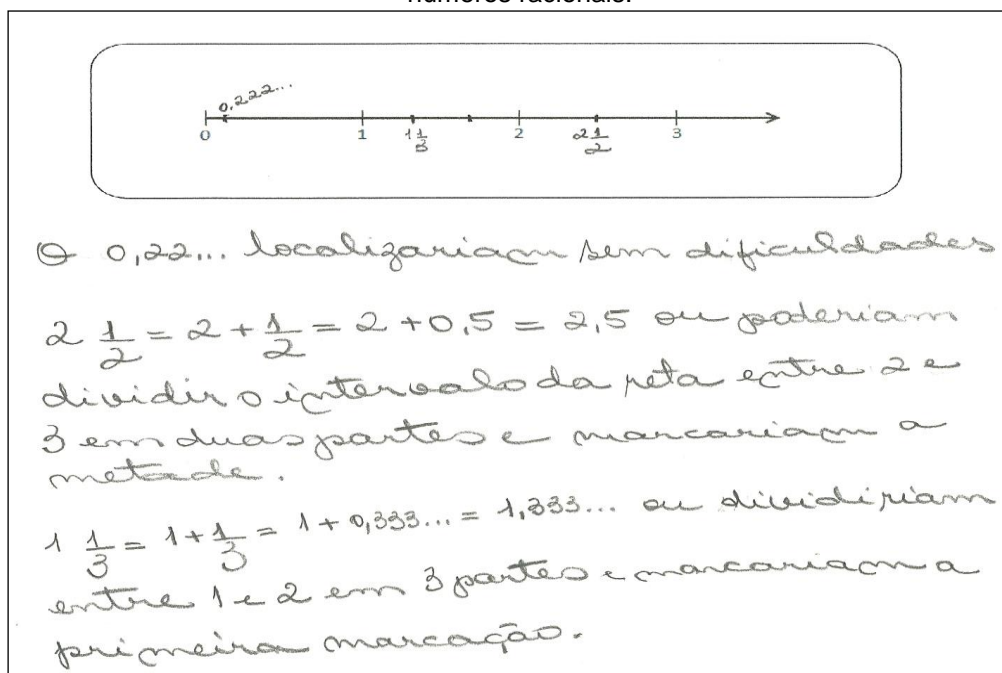 números racionais.
0,222...
0 1 1 1/3 2 2 1/2 3
O 0,22... localizariam sem dificuldades
2 1/2 = 2 + 1/2 = 2 + 0,5 = 2,5 ou poderiam
dividir o intervalo da reta entre 2 e
3 em duas partes e marcariam a
metade.
1 1/3 = 1 + 1/3 = 1 + 0,333... = 1,333... ou dividiriam
entre 1 e 2 em 3 partes e marcariam a
primeira marcação.